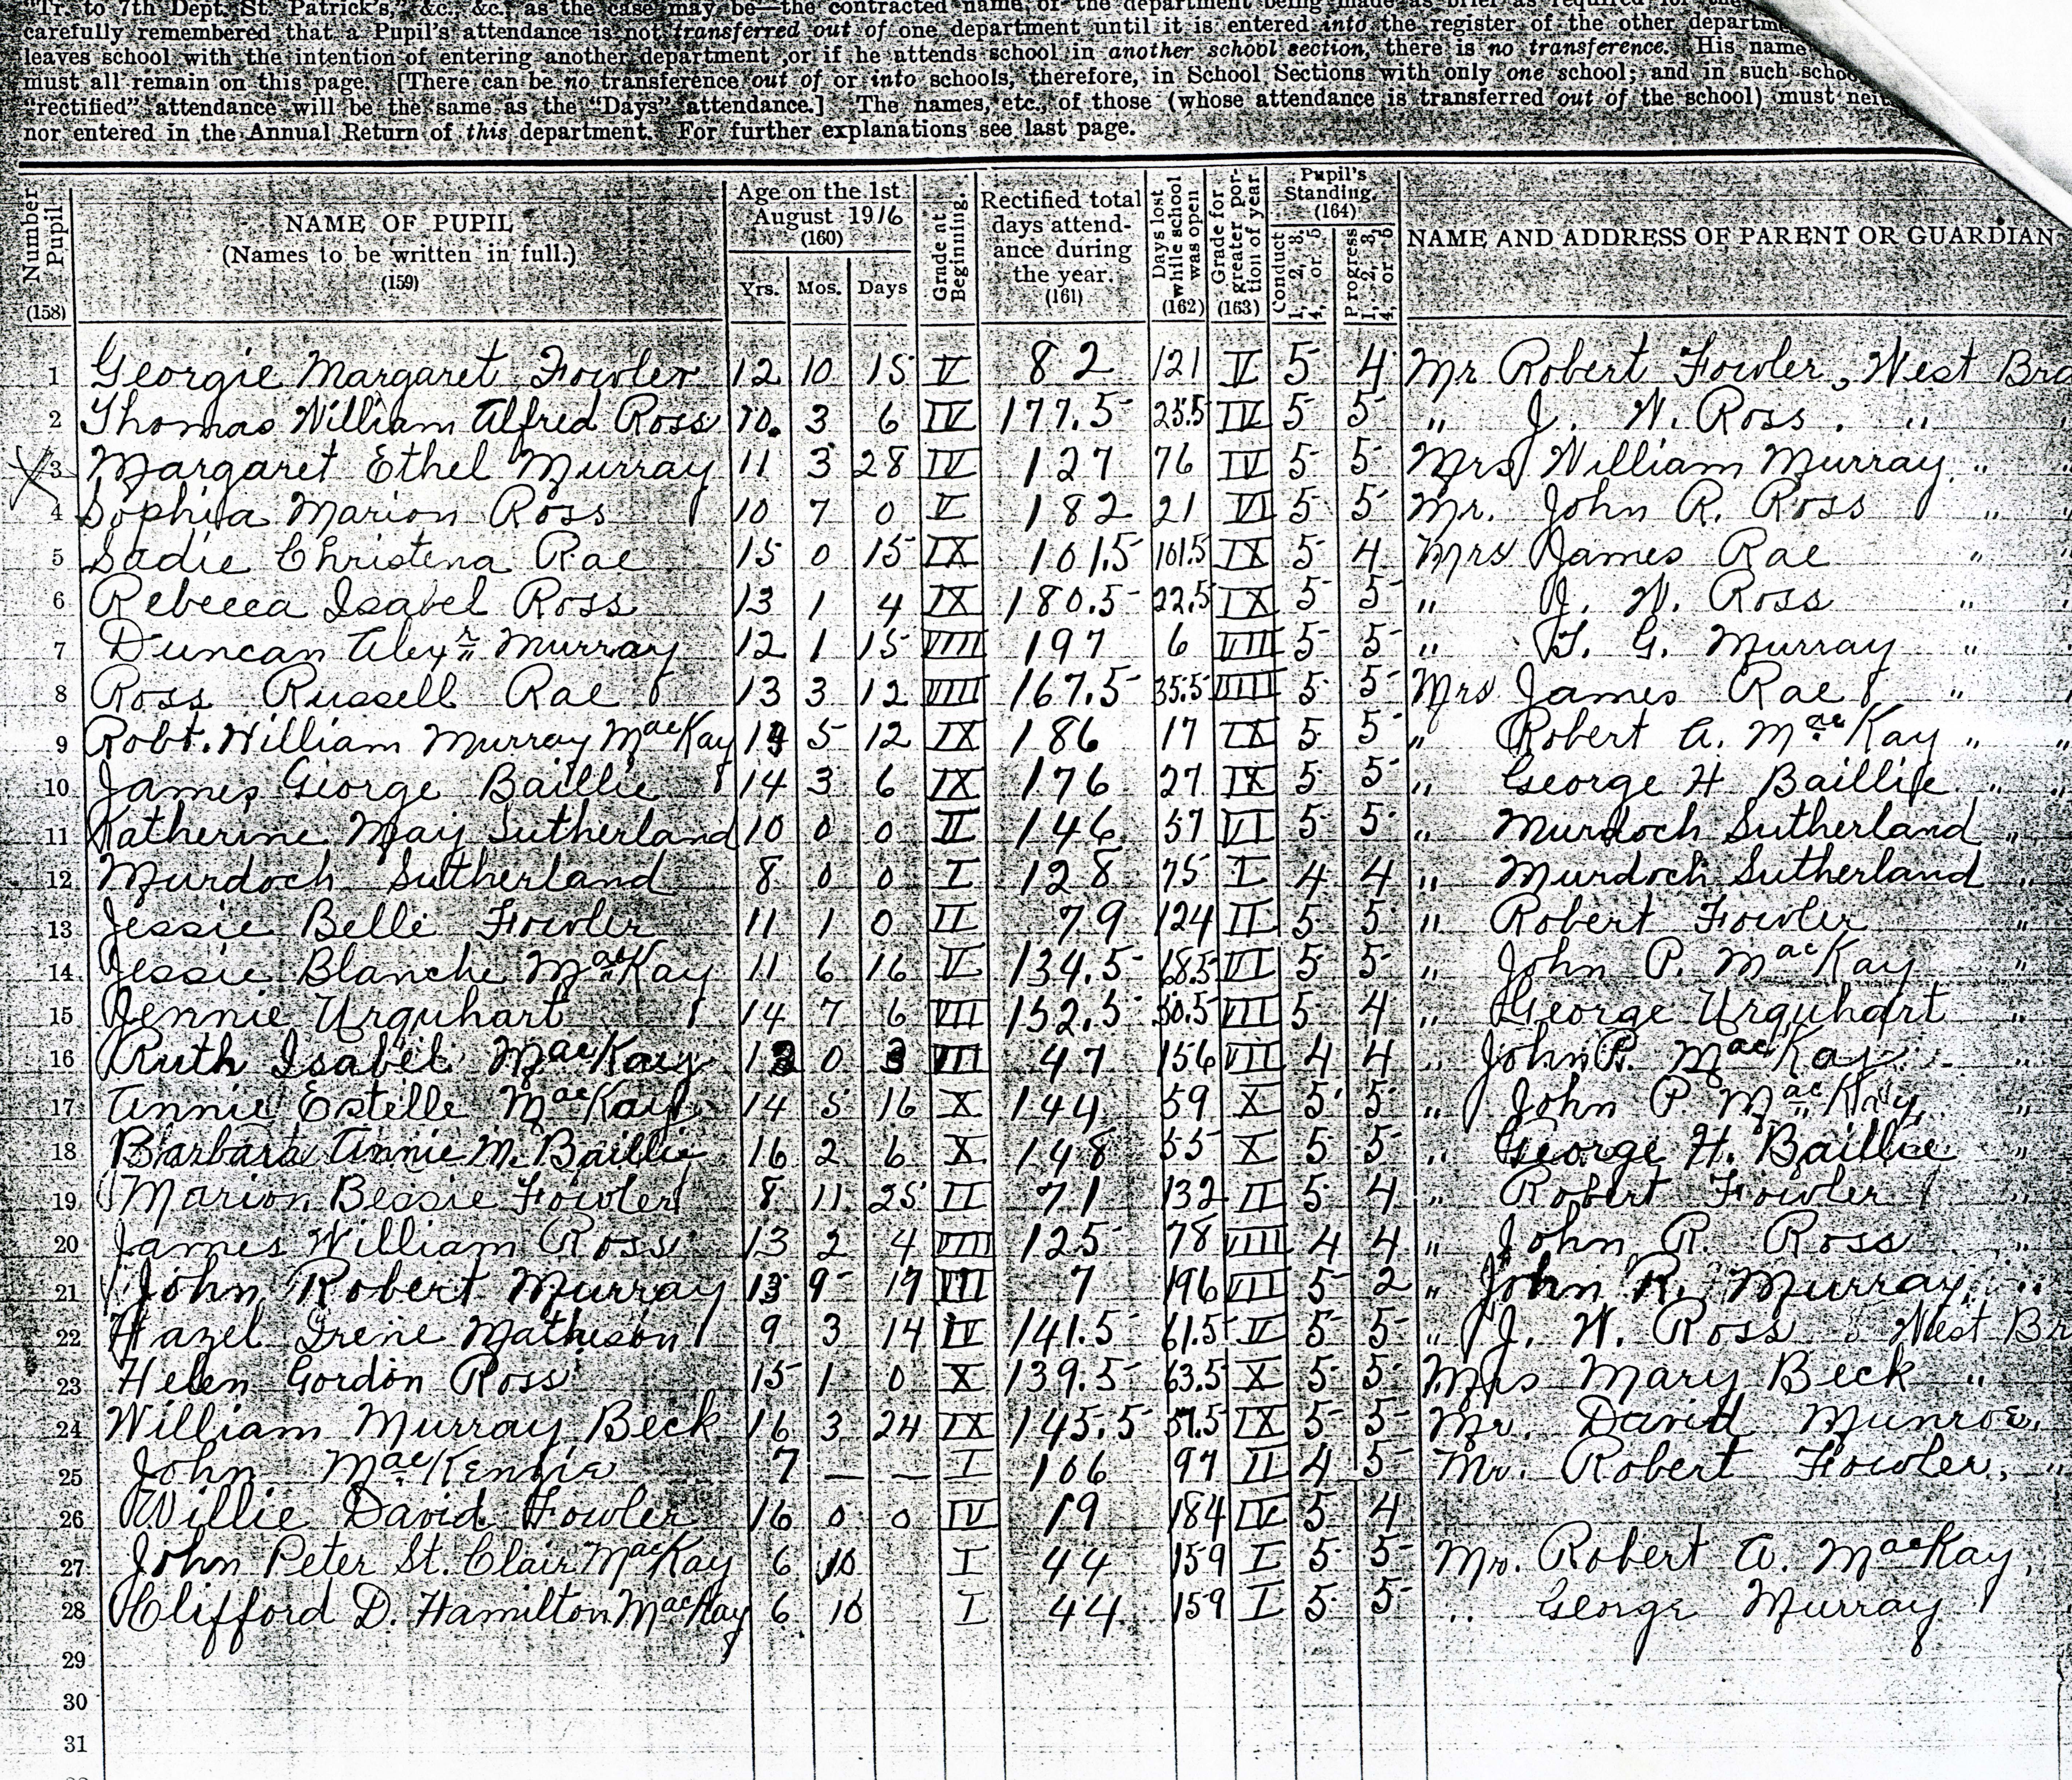 "Tr. to 7th Dept. St. Patrick's," &c., &c., as the case may be—the contracted name of the department being made as brief as required for the
carefully remembered that a Pupil's attendance is not transferred out of one department until it is entered into the register of the other departme
leaves school with the intention of entering another department ,or if he attends school in another school section, there is no transference. His name
must all remain on this page. [There can be no transference out of or into schools, therefore, in School Sections with only one school; and in such scho
"rectified" attendance will be the same as the "Days" attendance.] The names, etc., of those (whose attendance is transferred out of the school) must neit
nor entered in the Annual Return of this department. For further explanations see last page.
Number Pupil (158) NAME OF PUPIL (Names to be written in full.) (159) Age on the 1st August 1916 (160) Yrs. Mos. Days Grade at Beginning. Rectified total days attendance during the year. (161) Days lost while school was open (162) Grade for greater portion of year. (163) Pupil's Standing. (164) Conduct 1, 2, 3, 4, or 5 Progress 1, 2, 3, 4, or 5 NAME AND ADDRESS OF PARENT OR GUARDIAN
1 Georgie Margaret Fowler 12 10 15 V 82 121 V 5 4 Mr Robert Fowler, West Bra
2 Thomas William Alfred Ross 10. 3 6 IV 177.5 25.5 IV 5 5 " J. W. Ross. "
3 Margaret Ethel Murray 11 3 28 IV 127 76 IV 5 5 Mrs William Murray "
4 Sophia Marion Ross 10 7 0 V 182 21 VI 5 5 Mr. John R. Ross "
5 Sadie Christena Rae 15 0 15 IX 101.5 101.5 IX 5 4 Mrs James Rae "
6 Rebecca Isabel Ross 13 1 4 IX 180.5 22.5 IX 5 5 " J. W. Ross "
7 Duncan Alexr Murray 12 1 15 VIII 197 6 VIII 5 5 " G. Murray "
8 Ross Russell Rae 13 3 12 VIII 167.5 35.5 VIII 5 5 Mrs James Rae "
9 Robt. William Murray MacKay 5 12 IX 186 17 IX 5 5 " Robert A. MacKay " "
10 James George Baillie 14 3 6 IX 176 27 IX 5 5 " George H Baillie " "
11 Katherine May Sutherland 10 0 0 II 146 57 VI 5 5 " Murdoch Sutherland "
12 Murdoch Sutherland 8 0 0 I 128 75 I 4 4 " Murdoch Sutherland "
13 Jessie Belle Fowler 11 1 0 II 79 124 II 5 5 " Robert Fowler "
14 Jessie Blanche MacKay 11 6 16 V 134.5 68.5 VI 5 5 " John P. MacKay "
15 Jennie Urquhart 14 7 6 VII 152.5 50.5 VII 5 4 " George Urquhart "
16 Ruth Isabel MacKay 0 3 VII 47 156 VII 4 4 " John P. MacKay "
17 Annie Estelle MacKay 14 5 16 X 144 59 X 5 5 " John P MacKay "
18 Barbara Annie M. Baillie 16 2 6 X 148 55 X 5 5 " George H. Baillie "
19 Marion Bessie Fowler 8 11 25 II 71 132 II 5 4 " Robert Fowler "
20 James William Ross 13 2 4 VIII 125 78 VIII 4 4 " John R. Ross "
21 John Robert Murray 13 9 17 VII 7 196 VII 5 2 " John R. Murray "
22 Hazel Irene Matheson 9 3 14 IV 141.5 61.5 V 5 5 " J. W. Ross West Br
23 Helen Gordon Ross 15 1 0 X 139.5 63.5 X 5 5 Mrs Mary Beck "
24 William Murray Beck 16 3 24 IX 145.5 57.5 IX 5 5 Mr. David Munroe,
25 John MacKenzie 7 — — I 106 97 II 4 5 Mr. Robert Fowler, "
26 Willie David Fowler 16 0 0 IV 19 184 IV 5 4
27 John Peter St. Clair MacKay 6 10 I 44 159 I 5 5 Mr. Robert A. MacKay,
28 Clifford D. Hamilton MacKay 6 10 I 44 159 I 5 5 " George Murray
29
30
31